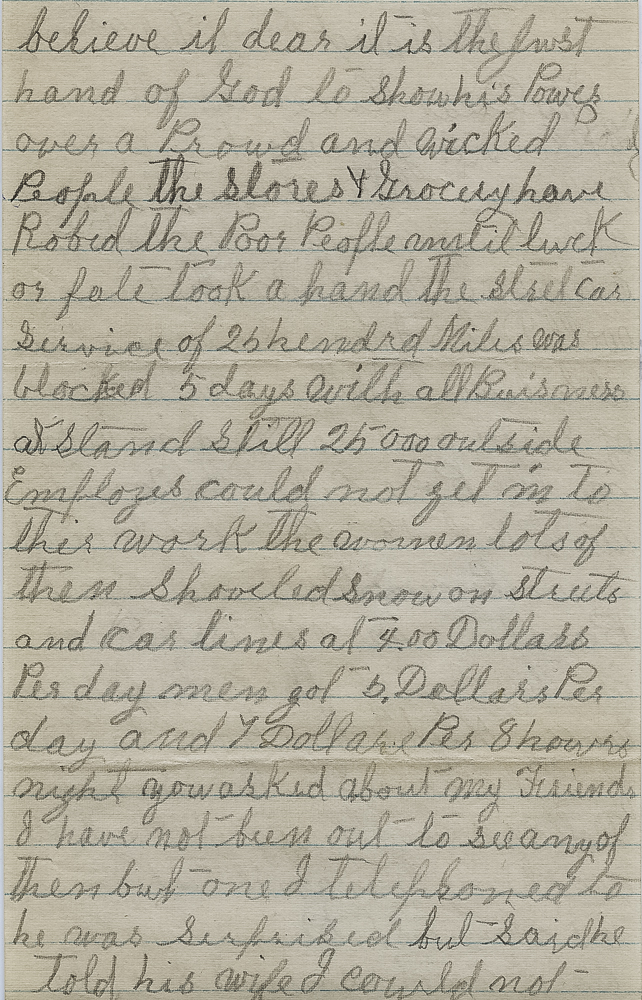 believe it dear it is the Just
hand of God to show his Power
over a Prowd and wicked
People the Stores & Grocery have
Robed the Poor People until luck
or fate took a hand the Stret Car
Service of 25 hendrd Miles was
blocked 5 days with all Buisness
at Stand Still 25000 outside
Employes could not get in to
thir work the women lots of
then Shoveled Snow on Streets
and Car lines at 4.00 Dollars
Per day men got 5. Dollars Per
day and 7 Dollars Per 8 howrs
night you asked about my Friends
I have not been out to see any of
then but one I telephoned to
he was Surprised but Said he
Told his wife I cowld not